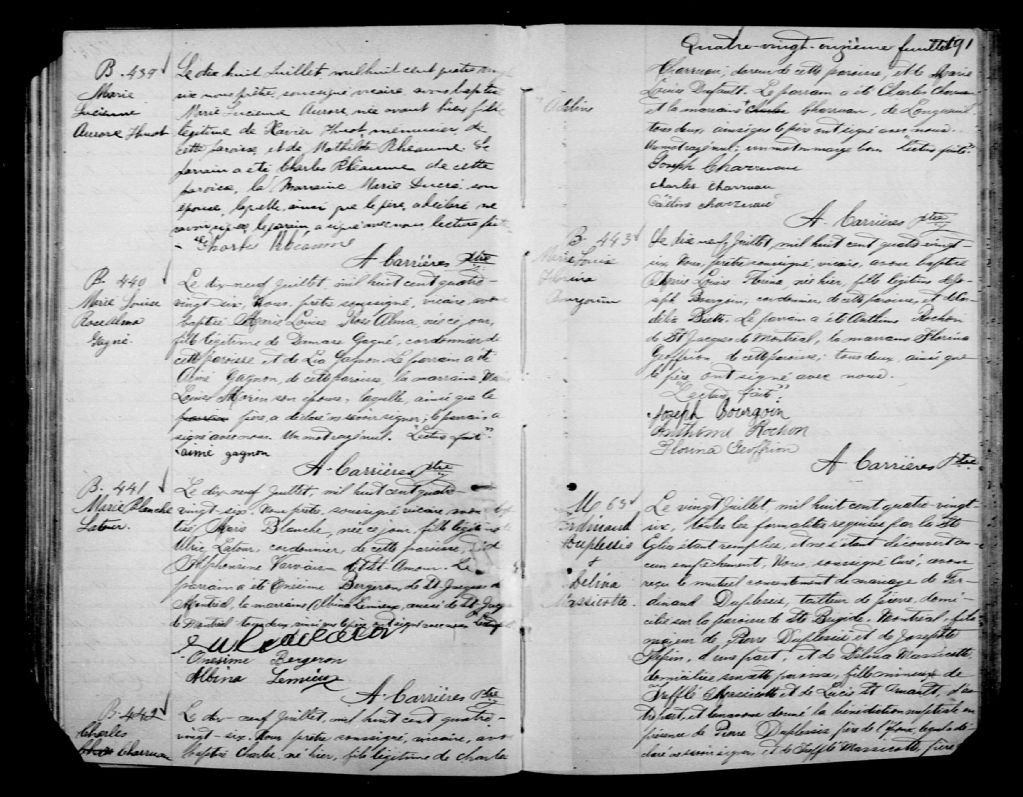 B. 439
Marie
Lucienne
Aurore Huot
Le dix huit Juillet, mil huit cent quatre vingt
six nous prêtre, soussigné, vicaire, avons baptisé
Marie Lucienne Aurore, née avant hier, fille
légitime de Xavier Huot, menuisier, de
cette paroisse, et de Mathilde Rhéaume. Le
parrain a été Charles Rhéaume de cette
paroisse, la Marraine Marie son
épouse, laquelle, ainsi que le père, a déclaré ne
savoir signer, le parrain a signé avec nous, lecture faite
Charles Rhéaume
A. Carrières ptre
B. 440
Marie Louise
Rose Alma
Gagné
Le dix-neuf Juillet, mil huit cent quatre-
vingt-six, Nous, prêtre soussigné, vicaire, avons
baptisé Marie Louise Rose Alma, née ce jour,
fille légitime de Damase Gagné, cordonnier de
cette paroisse, et de Léa Gagnon. Le parrain a été
Aimé Gagnon, de cette paroisse, la marraine Marie
Louise Morin son épouse, laquelle, ainsi que le
parrain père, a déclaré ne savoir signer; le parrain a
signé avec nous. Un mot rayé nul. "Lecture faite".
aimé gagnon
A. Carrières ptre
B. 441
Marie Blanche
Latour
Le dix-neuf Juillet, mil huit cent quatre-
vingt-six. Nous prêtre, soussigné, vicaire, avons bap-
tisé Marie Blanche, née ce jour, fille légitime de
Ulric Latour, cordonnier, de cette paroisse, et de
Alphonsine Vervais St Amour. Le
parrain a été Onésime Bergeron de St Jacques de
Montréal, la marraine Albina Lemieux, aussi de St Jacques
de Montréal tous deux, ainsi que le père ont signé avec nous
Onesime Bergeron
Albina Lemieux
A. Carrières Ptre
B. 442
Charles
Charruau
Le dix-neuf Juillet, mil huit cent quatre-
vingt-six. Nous prêtre soussigné, vicaire, avons
baptisé Charles, né hier, fils légitime de Charles
Quatre-vingt-onzième feuillet 91
Charruau, doreur de cette paroisse, et de Marie
Louise Dufault. Le parrain a été Charles Charruau
et la marraine Charruau, de Longueuil
tous deux ainsi que le père ont signé avec nous.
Un mot rayé nul; un mot en marge bon. Lecture faite"
Joseph Charruau
charles charruau
A. Carrières ptre
B. 443
Marie Louise
Florina
Bourgoin
Le dix neuf Juillet, mil huit cent quatre vingt-
six Nous, prêtre soussigné, vicaire, avons baptisé
Marie Louise Florina, née hier, fille légitime de Jo-
seph Bourgoin, cordonnier, de cette paroisse, et d'A-
délia . Le parrain a été Anthime Rochon
de St Jacques de Montréal, la marraine Florina
Geoffrion, de cette paroisse; tous deux, ainsi que
le père, ont signé avec nous.
"Lecture faite"
Joseph Bourgoin
Anthime Rochon
Florina Geoffrion
A. Carrières Ptre
M. 63
Ferdinand
Duplessis
+
Délina
Massicotte
Le vingt Juillet, mil huit cent quatre-vingt-
six, toutes les formalités requises par la Ste
Eglise étant remplies, et ne s'étant découvert au-
cun empêchement, Nous, soussigné Curé, avons
reçu le mutuel consentement de mariage de Fer-
dinand Duplessis, tailleur de pierre, domi-
cilié sur la paroisse de Ste Brigide, Montréal, fils
majeur de Pierre Duplessis et de Josephte
Pépin, d'une part, et de Délina Massicotte,
domiciliée sur cette paroisse, fille mineure de
Trefflé Massicotte et de Lucie St d'au-
tre part, et leur avons donné la bénédiction nuptiale en
présence de Pierre Duplessis père de l'époux, lequel a dé-
claré ne savoir signer, et de Trefflé Massicotte, père